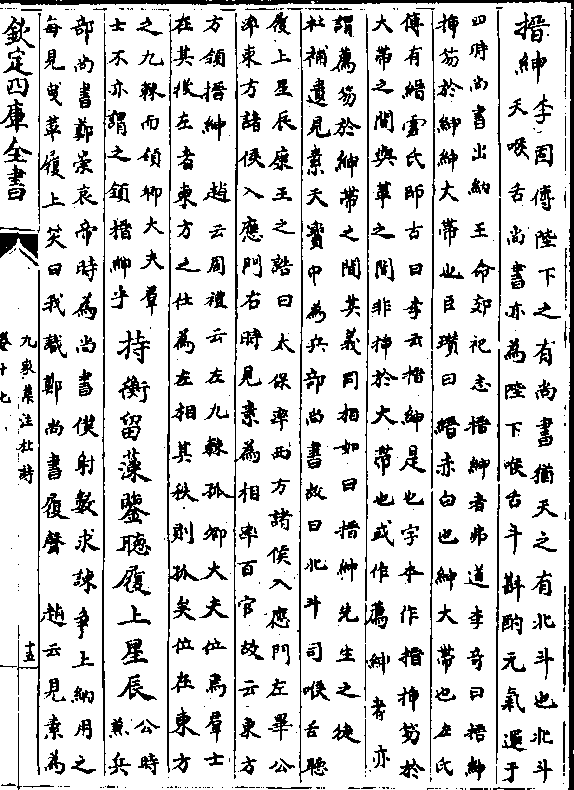 搢紳李固傳陛下之有尚書猶天之有北斗也北斗
天喉舌尚書亦為陛下喉舌斗斟酌元氣運乎
四時尚書出納王命郊祀志搢紳者弗道李奇曰搢紳
揷笏於紳紳大帶也臣瓚曰縉赤白也紳大帶也左氏
傳有縉雲氏師古曰李云搢紳是也字本作搢揷笏於
大帶之間與革之間非揷於大帶也或作薦紳者亦
謂薦笏於紳帶之間其義同相如曰搢紳先生之徒
杜補遺見素天寳中為兵部尚書故曰北斗司喉舌聽
履上星辰康王之誥曰太保率西方諸侯入應門左畢公
率東方諸侯入應門右時見素為相率百官故云東方
方領搢紳 趙云周禮云左九棘孤卿大夫位焉羣士
在其後左者東方之仕為左相其秩則孤矣位在東方
之九棘而領卿大夫羣
士不亦謂之領搢紳乎
持衡留藻鑒聽履上星辰公時
兼兵
部尚書鄭崇哀帝時為尚書僕射數求諫爭上納用之
每見曵革履上笑曰我識鄭尚書履聲 趙云見素為
欽定四庫全書
九家集注杜詩
卷十七
十五